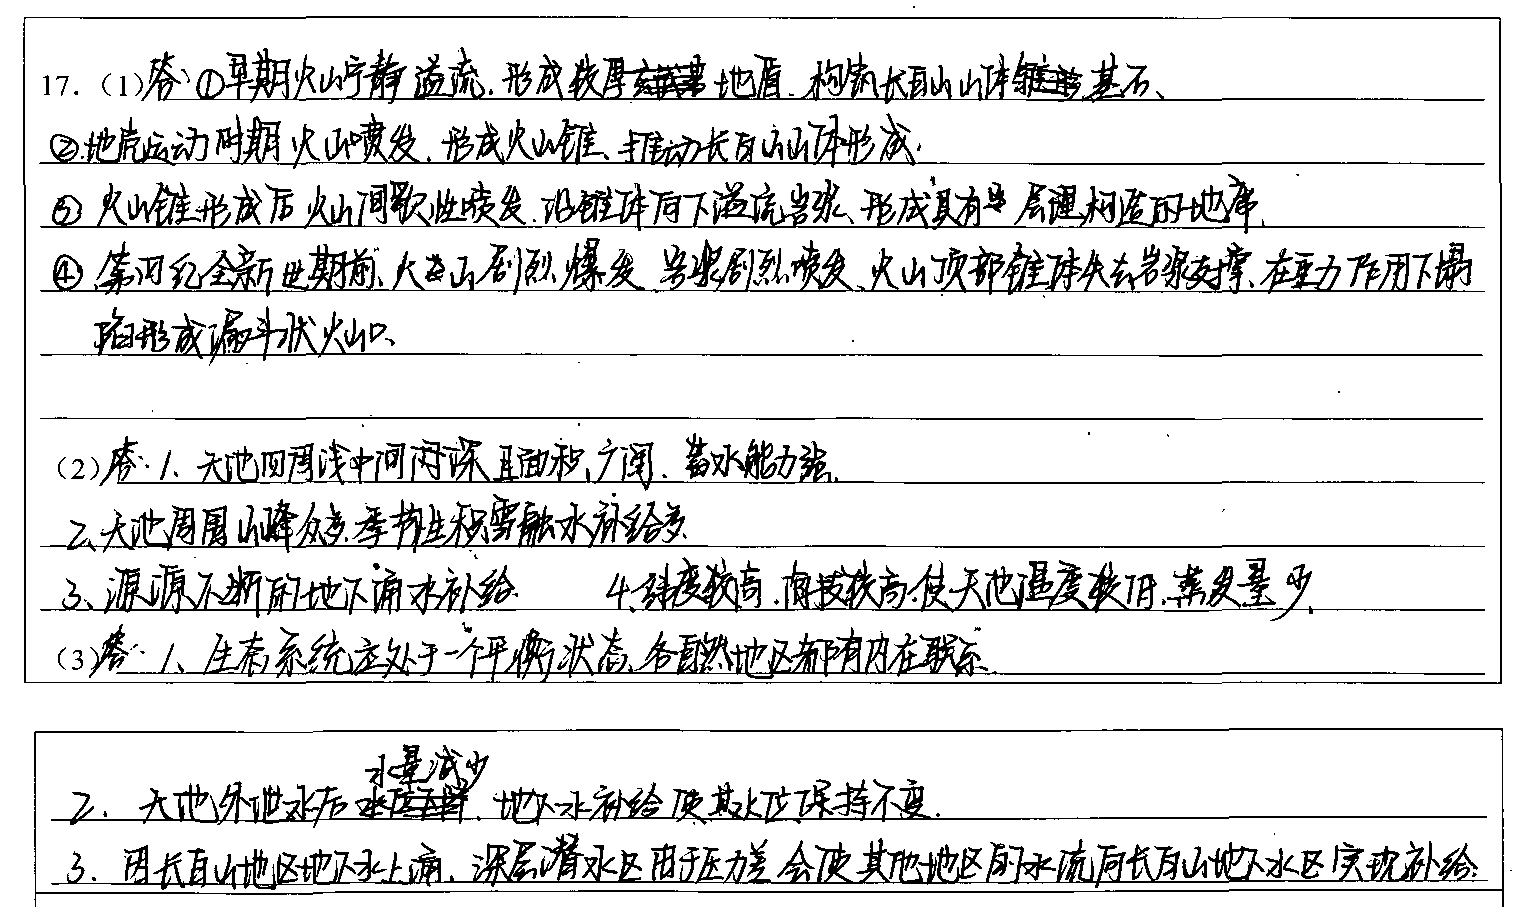 17.（1）答：①早期火山宁静溢流，形成较厚地盾，构筑长白山山体基石、
②地壳运动时期火山喷发，形成火山锥、推动长白山山体形成.
③火山锥形成后火山间歇性喷发，沿锥体向下溢流岩浆、形成具有层理构造的地席.
④第四纪全新世期前、火山剧烈爆发 岩浆剧烈喷发、火山顶部锥体失去岩浆支撑、在重力作用下塌
陷形成漏斗状火山口、
（2）答：1、天池四周浅中间深且面积广阔，蓄水能力强.
2、天池周围山峰众多.季节性积雪融水补给多.
3、源源不断的地下涌水补给. 4.纬度较高，海拔较高.使天池温度较低、蒸发量少.
（3）答：1、生态系统应处于一个平衡状态、各自然地区都有内在联系.
水量减少
2、天池外泄水后，地下水补给使其水位保持不变.
3、因长白山地区地下水上涌，深层潜水区由于压力差会使其他地区的水流向长白山地下水区实现补给.